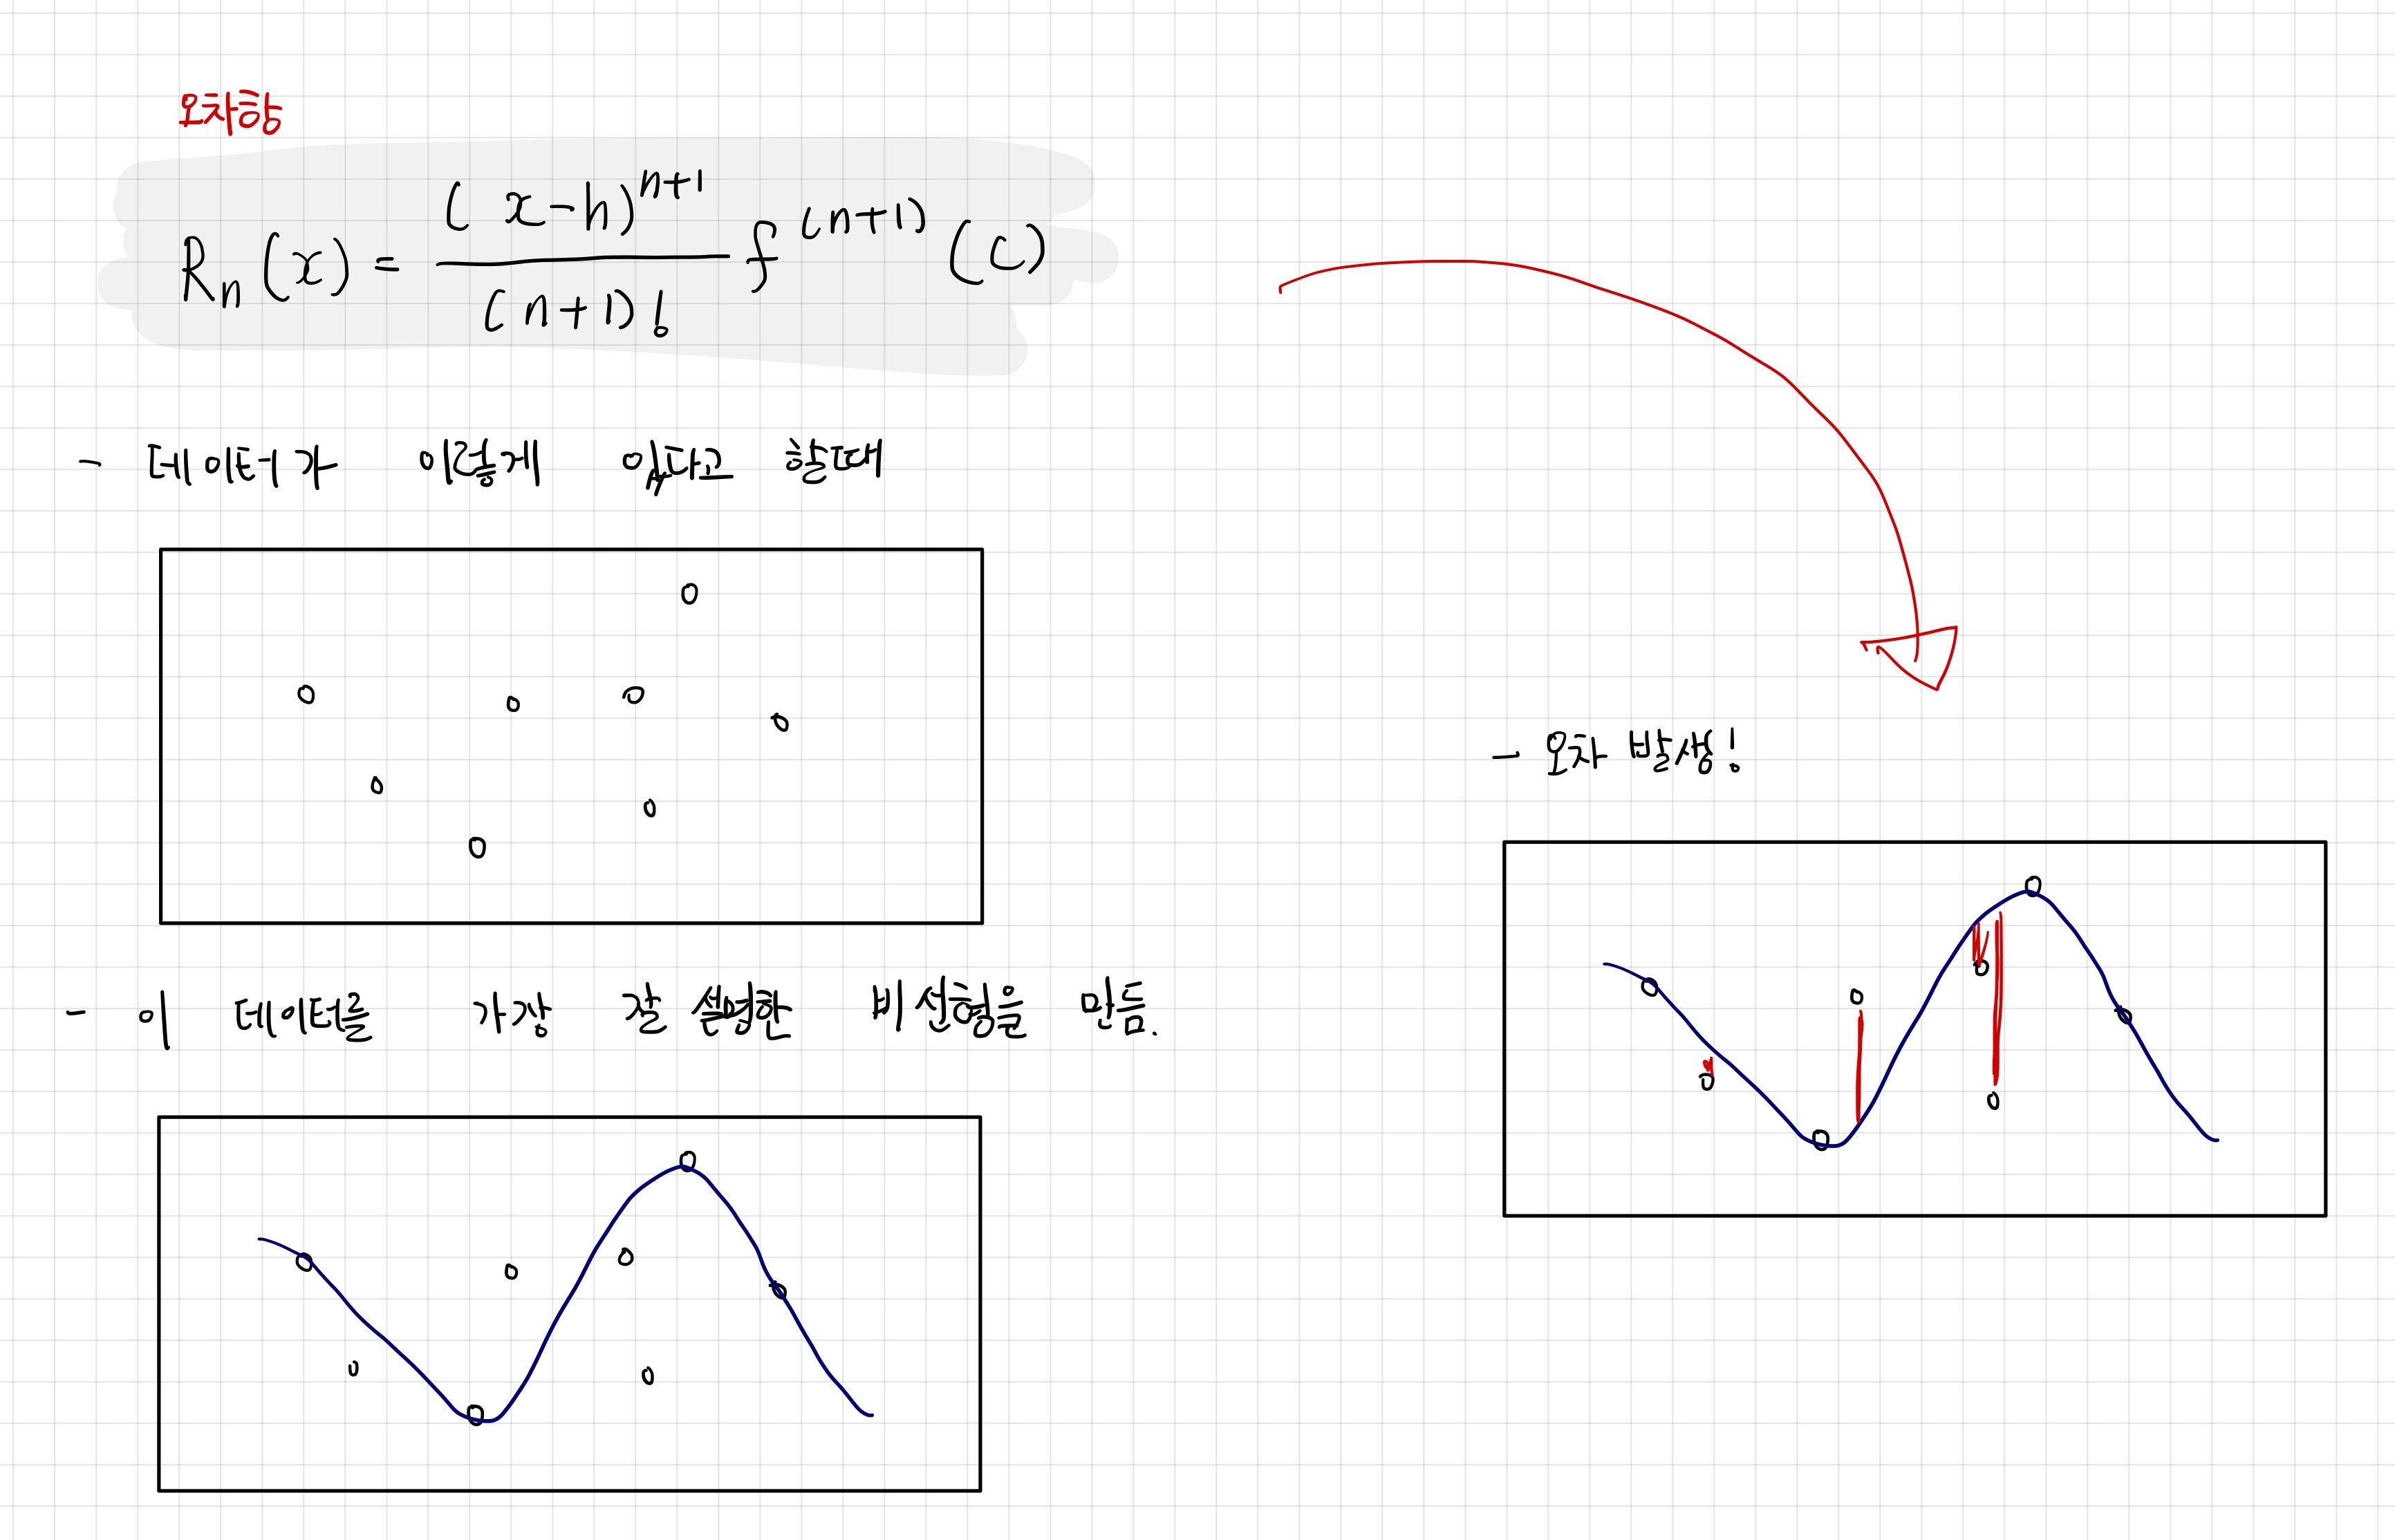 오차항
Rn(x) = (x-h)^n+1 / (n+1)! f^(n+1) (c)
- 데이터가 이렇게 있다고 할때
- 오차 발생!
- 이 데이터를 가장 잘 설명한 비선형을 만듬.